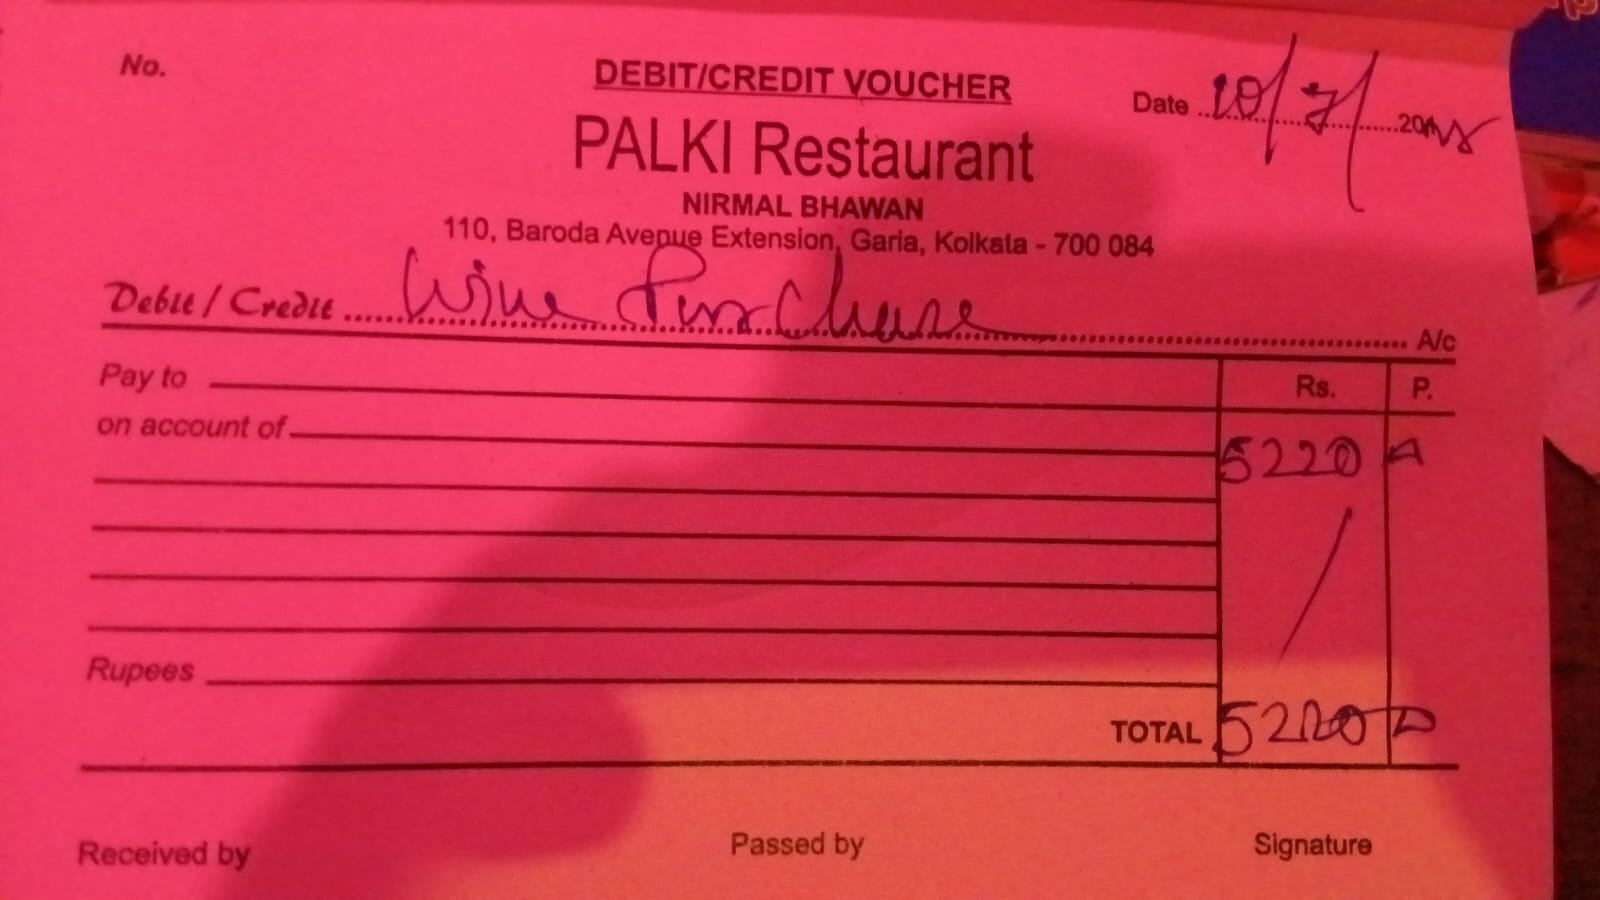 No.
DEBIT/CREDIT VOUCHER
Date 20/7/
PALKI Restaurant
NIRMAL BHAWAN
110, Baroda Avenue Extension, Garia, Kolkata - 700 084
Debit / Credit Wine Purchase A/c
Pay to
Rs. P.
on account of
5220
Rupees
TOTAL 5220
Received by Passed by Signature